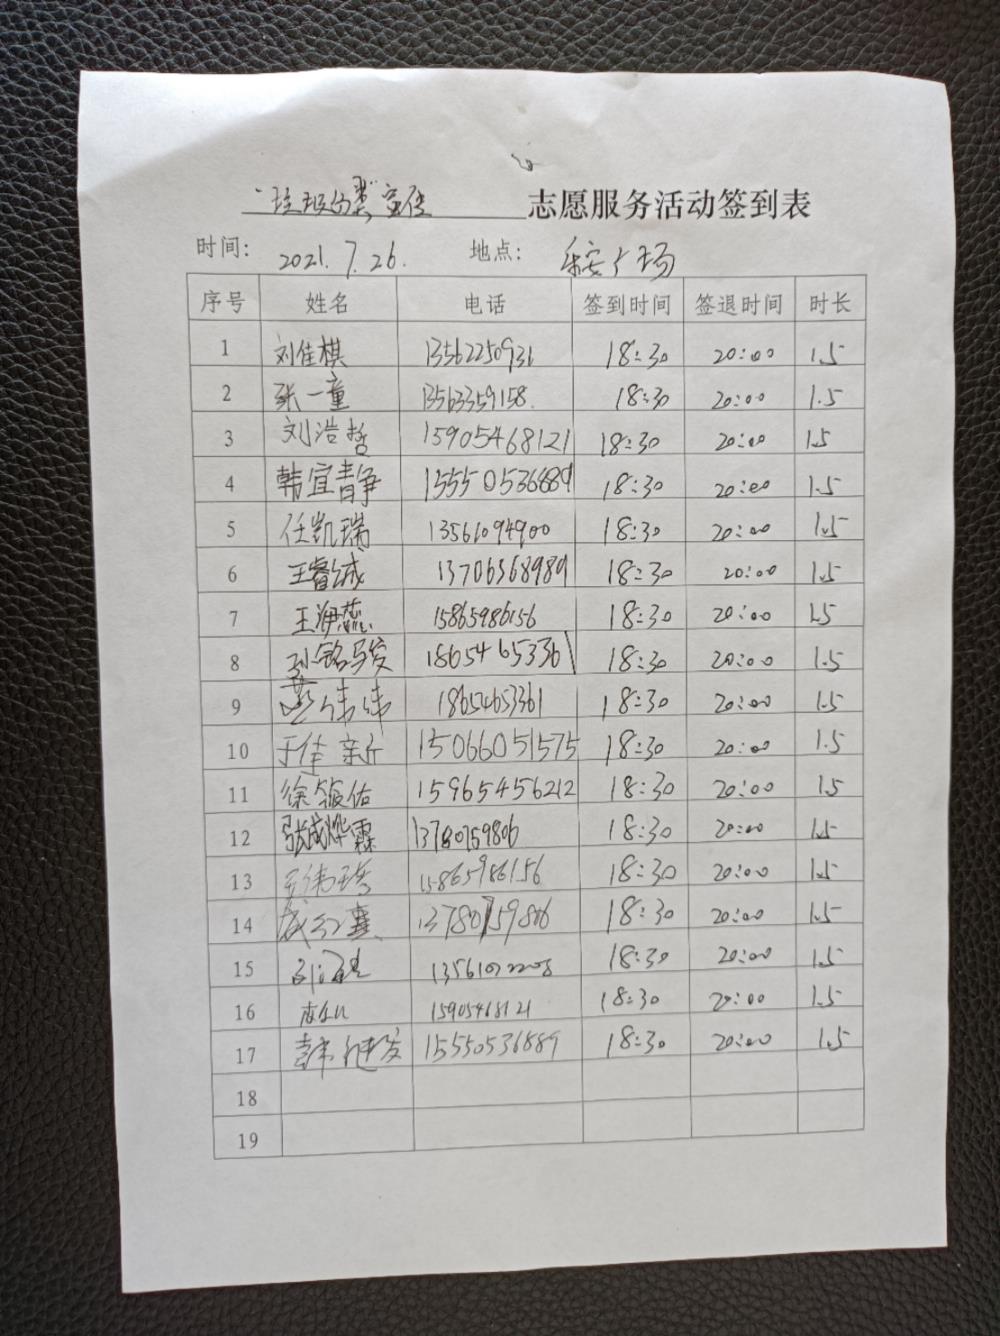 "垃圾分类"宣传 志愿服务活动签到表
时间: 2021.7.26. 地点: 乐安广场
序号 姓名 电话 签到时间 签退时间 时长
1 刘佳棋 13562250931 18:30 20:00 1.5
2 张一童 13563359158. 18:30 20:00 1.5
3 刘浩哲 15905468121 18:30 20:00 1.5
4 韩宜静 15550536889 18:30 20:00 1.5
5 任凯瑞 13561094900 18:30 20:00 1.5
6 王睿诚 13706368989 18:30 20:00 1.5
7 王洢蕊 15865986156 18:30 20:00 1.5
8 孙铭骏 18654653361 18:30 20:00 1.5
9 18654653361 18:30 20:00 1.5
10 于佳新 15066051575 18:30 20:00 1.5
11 徐筱佑 15965456212 18:30 20:00 1.5
12 张成烨霖 13780759806 18:30 20:00 1.5
13 15865986156 18:30 20:00 1.5
14 13780759806 18:30 20:00 1.5
15 18:30 20:00 1.5
16 15905468121 18:30 20:00 1.5
17 15550536889 18:30 20:00 1.5
18
19